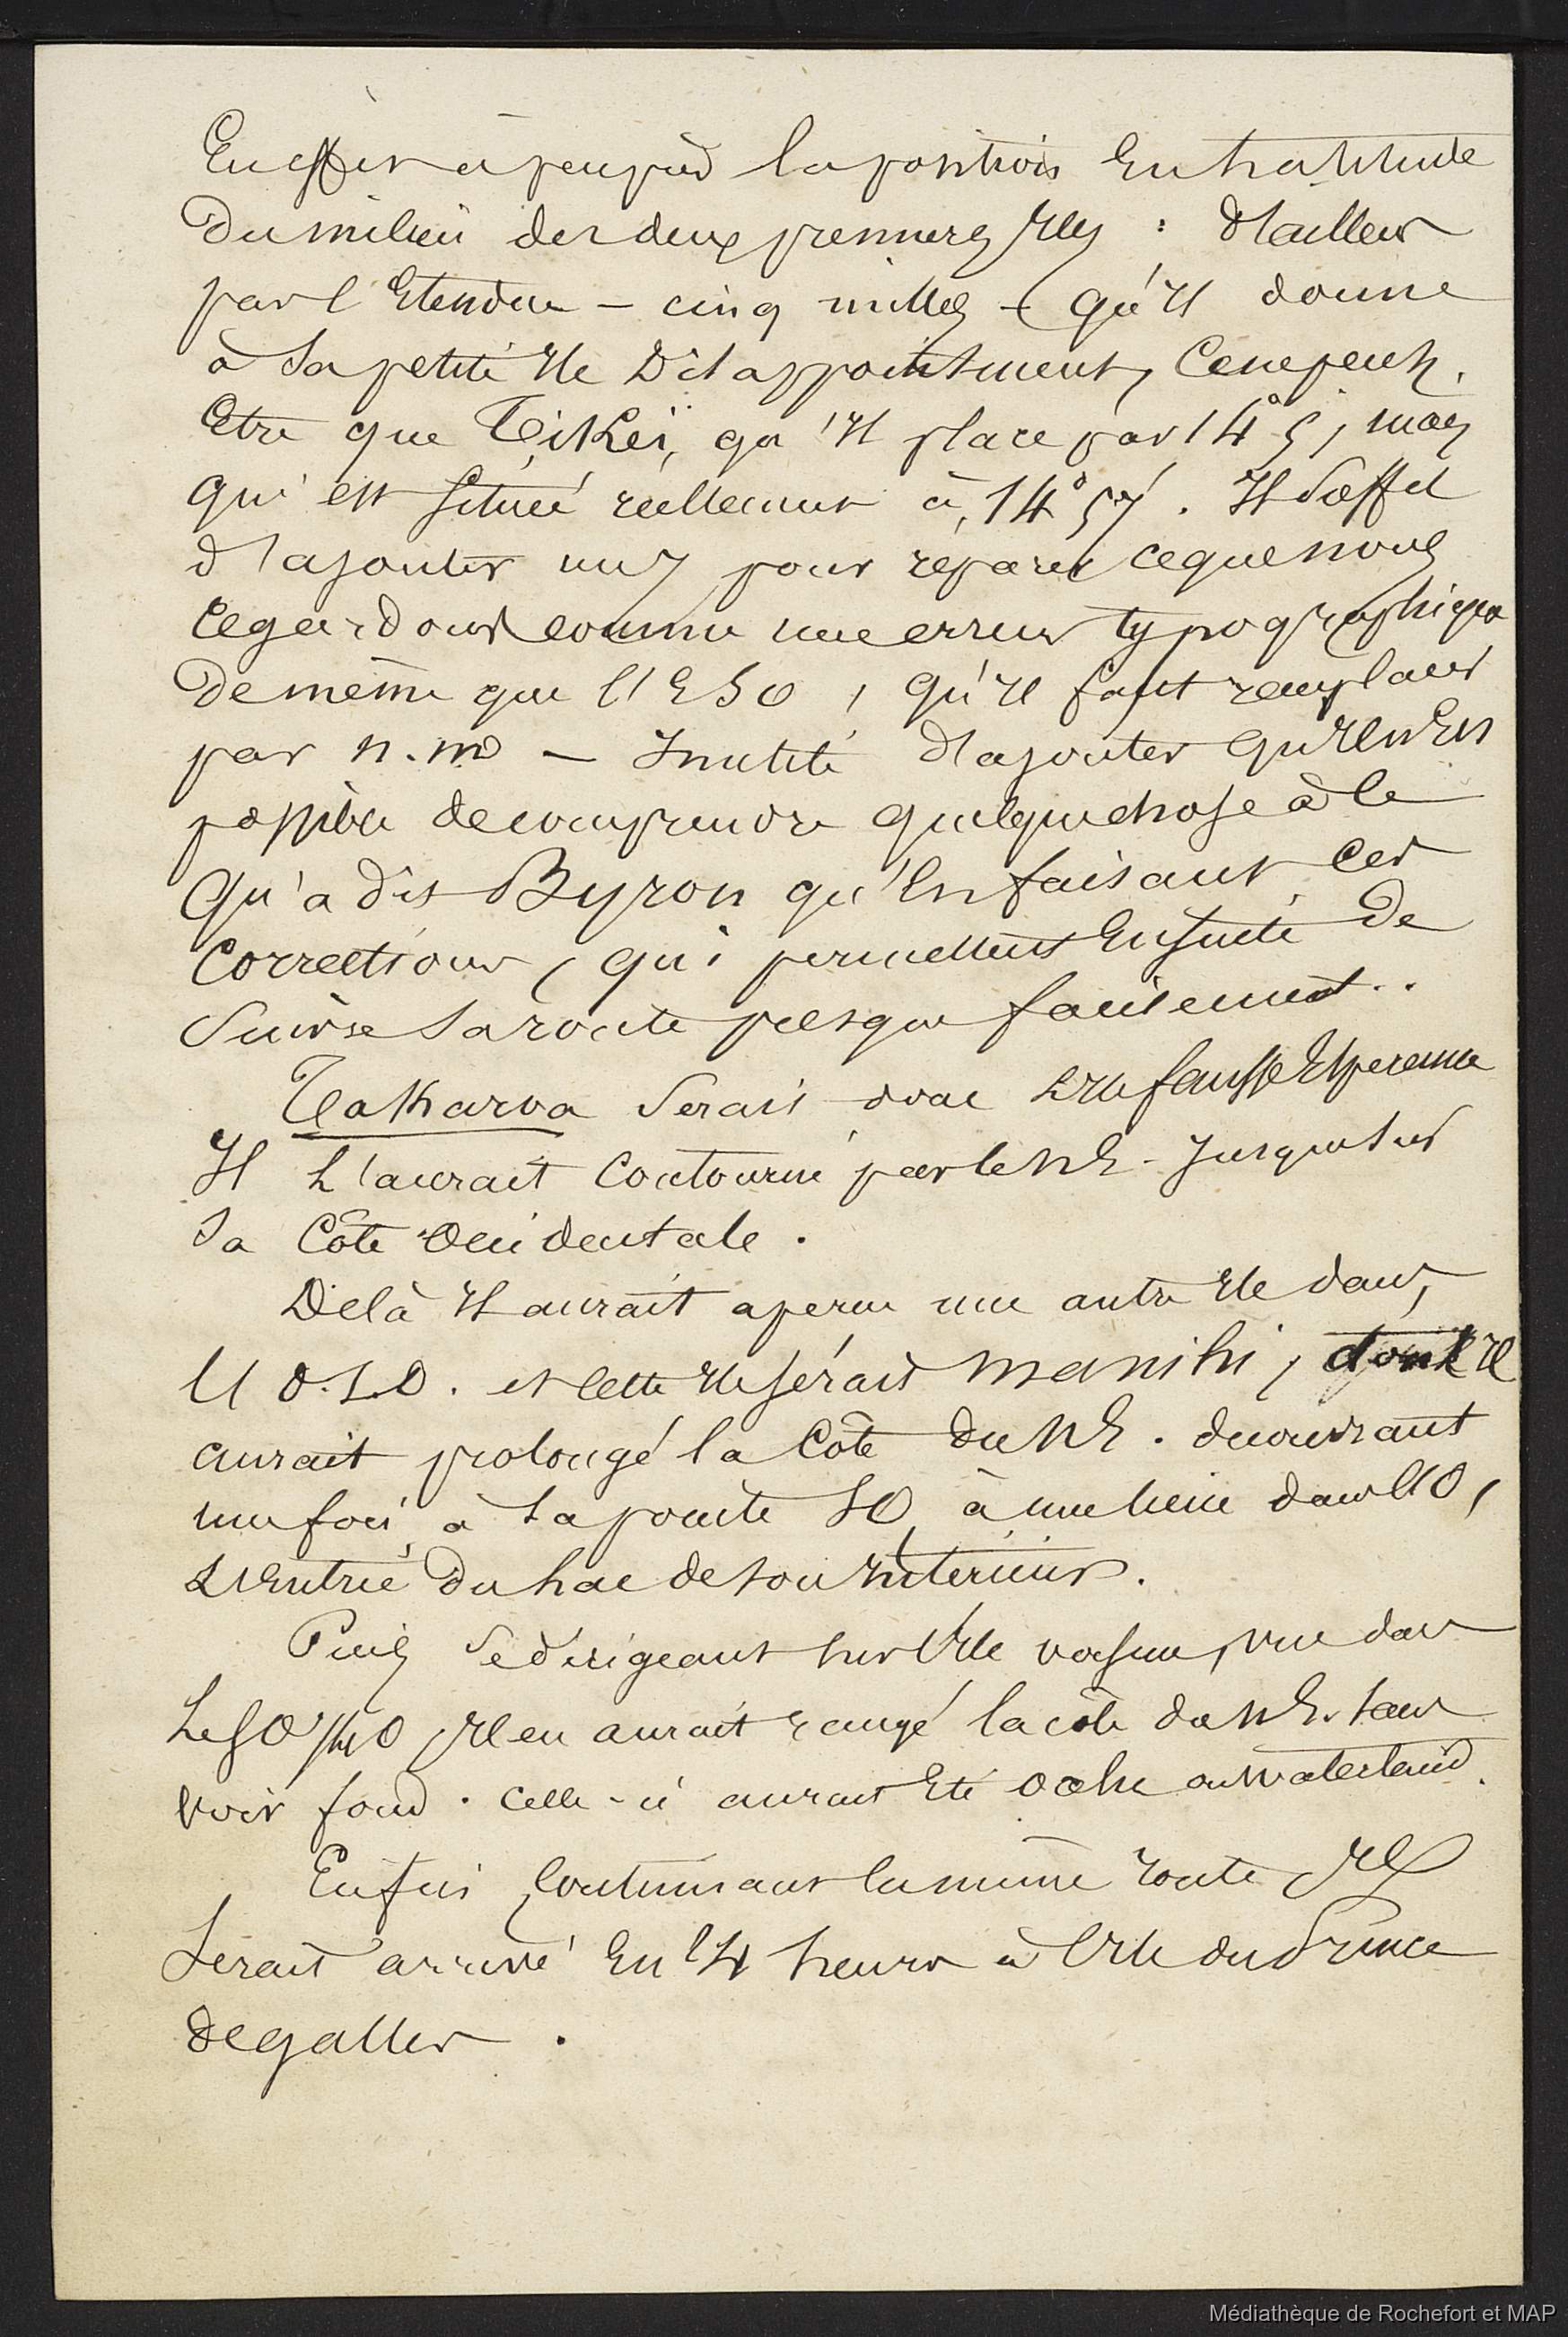 En effet à peu près la position en latitude
du milieu des deux premières Iles : d'ailleurs
par l'Etendue - cinq milles - qu'il donne
à sa petite Ile Disappointment, ce ne peut
Etre que Tikeï, qu'il place par 14° 5', mais
qui est située réellement à 14° 57'. Il suffit
d'ajouter un 7 pour réparer ce que nous
regardons comme une erreur typographique
de même que l'ESO, qu'il faut remplacer
par n.m. — Inutile d'ajouter qu'il n'est
possible de comprendre quelque chose à ce
qu'a dit Byron qu'en faisant ces
corrections, qui permettent ensuite de
suivre sa route presque facilement..
Takarva serait donc sa fausse Espérance
Il l'aurait contourné par le NE. jusque sur
sa Côte occidentale.
De là il aurait aperçu une autre Ile dans
l'O.S.O. et cette Ile serait manihi, dont il
aurait prolongé la Côte du NE. découvrant
une fois à sa pointe SO, à une lieue dans l'O,
L'Entrée du Lac de son Intérieur.
Puis se dirigeant sur l'Ile voisine, vue dans
Le SO 1/4 O, Il en aurait rangé la côte du NE. sans
voir fond. Celle-ci aurait Eté oahe ou Waterland.
Enfin, continuant la même route Il
serait arrivé En 24 heures à l'Ile du Prince
de galles.
Médiathèque de Rochefort et MAP